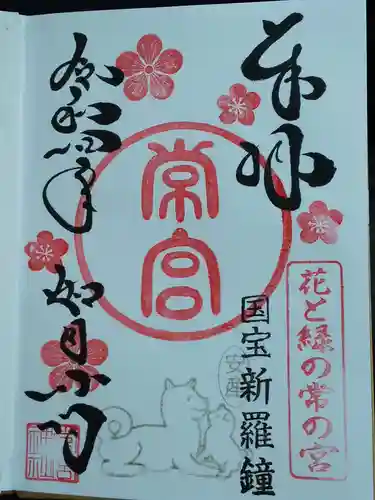 奉拝
花と緑の常の宮
国宝新羅鐘
安産
常宮
令和四年
如月
常宮神社